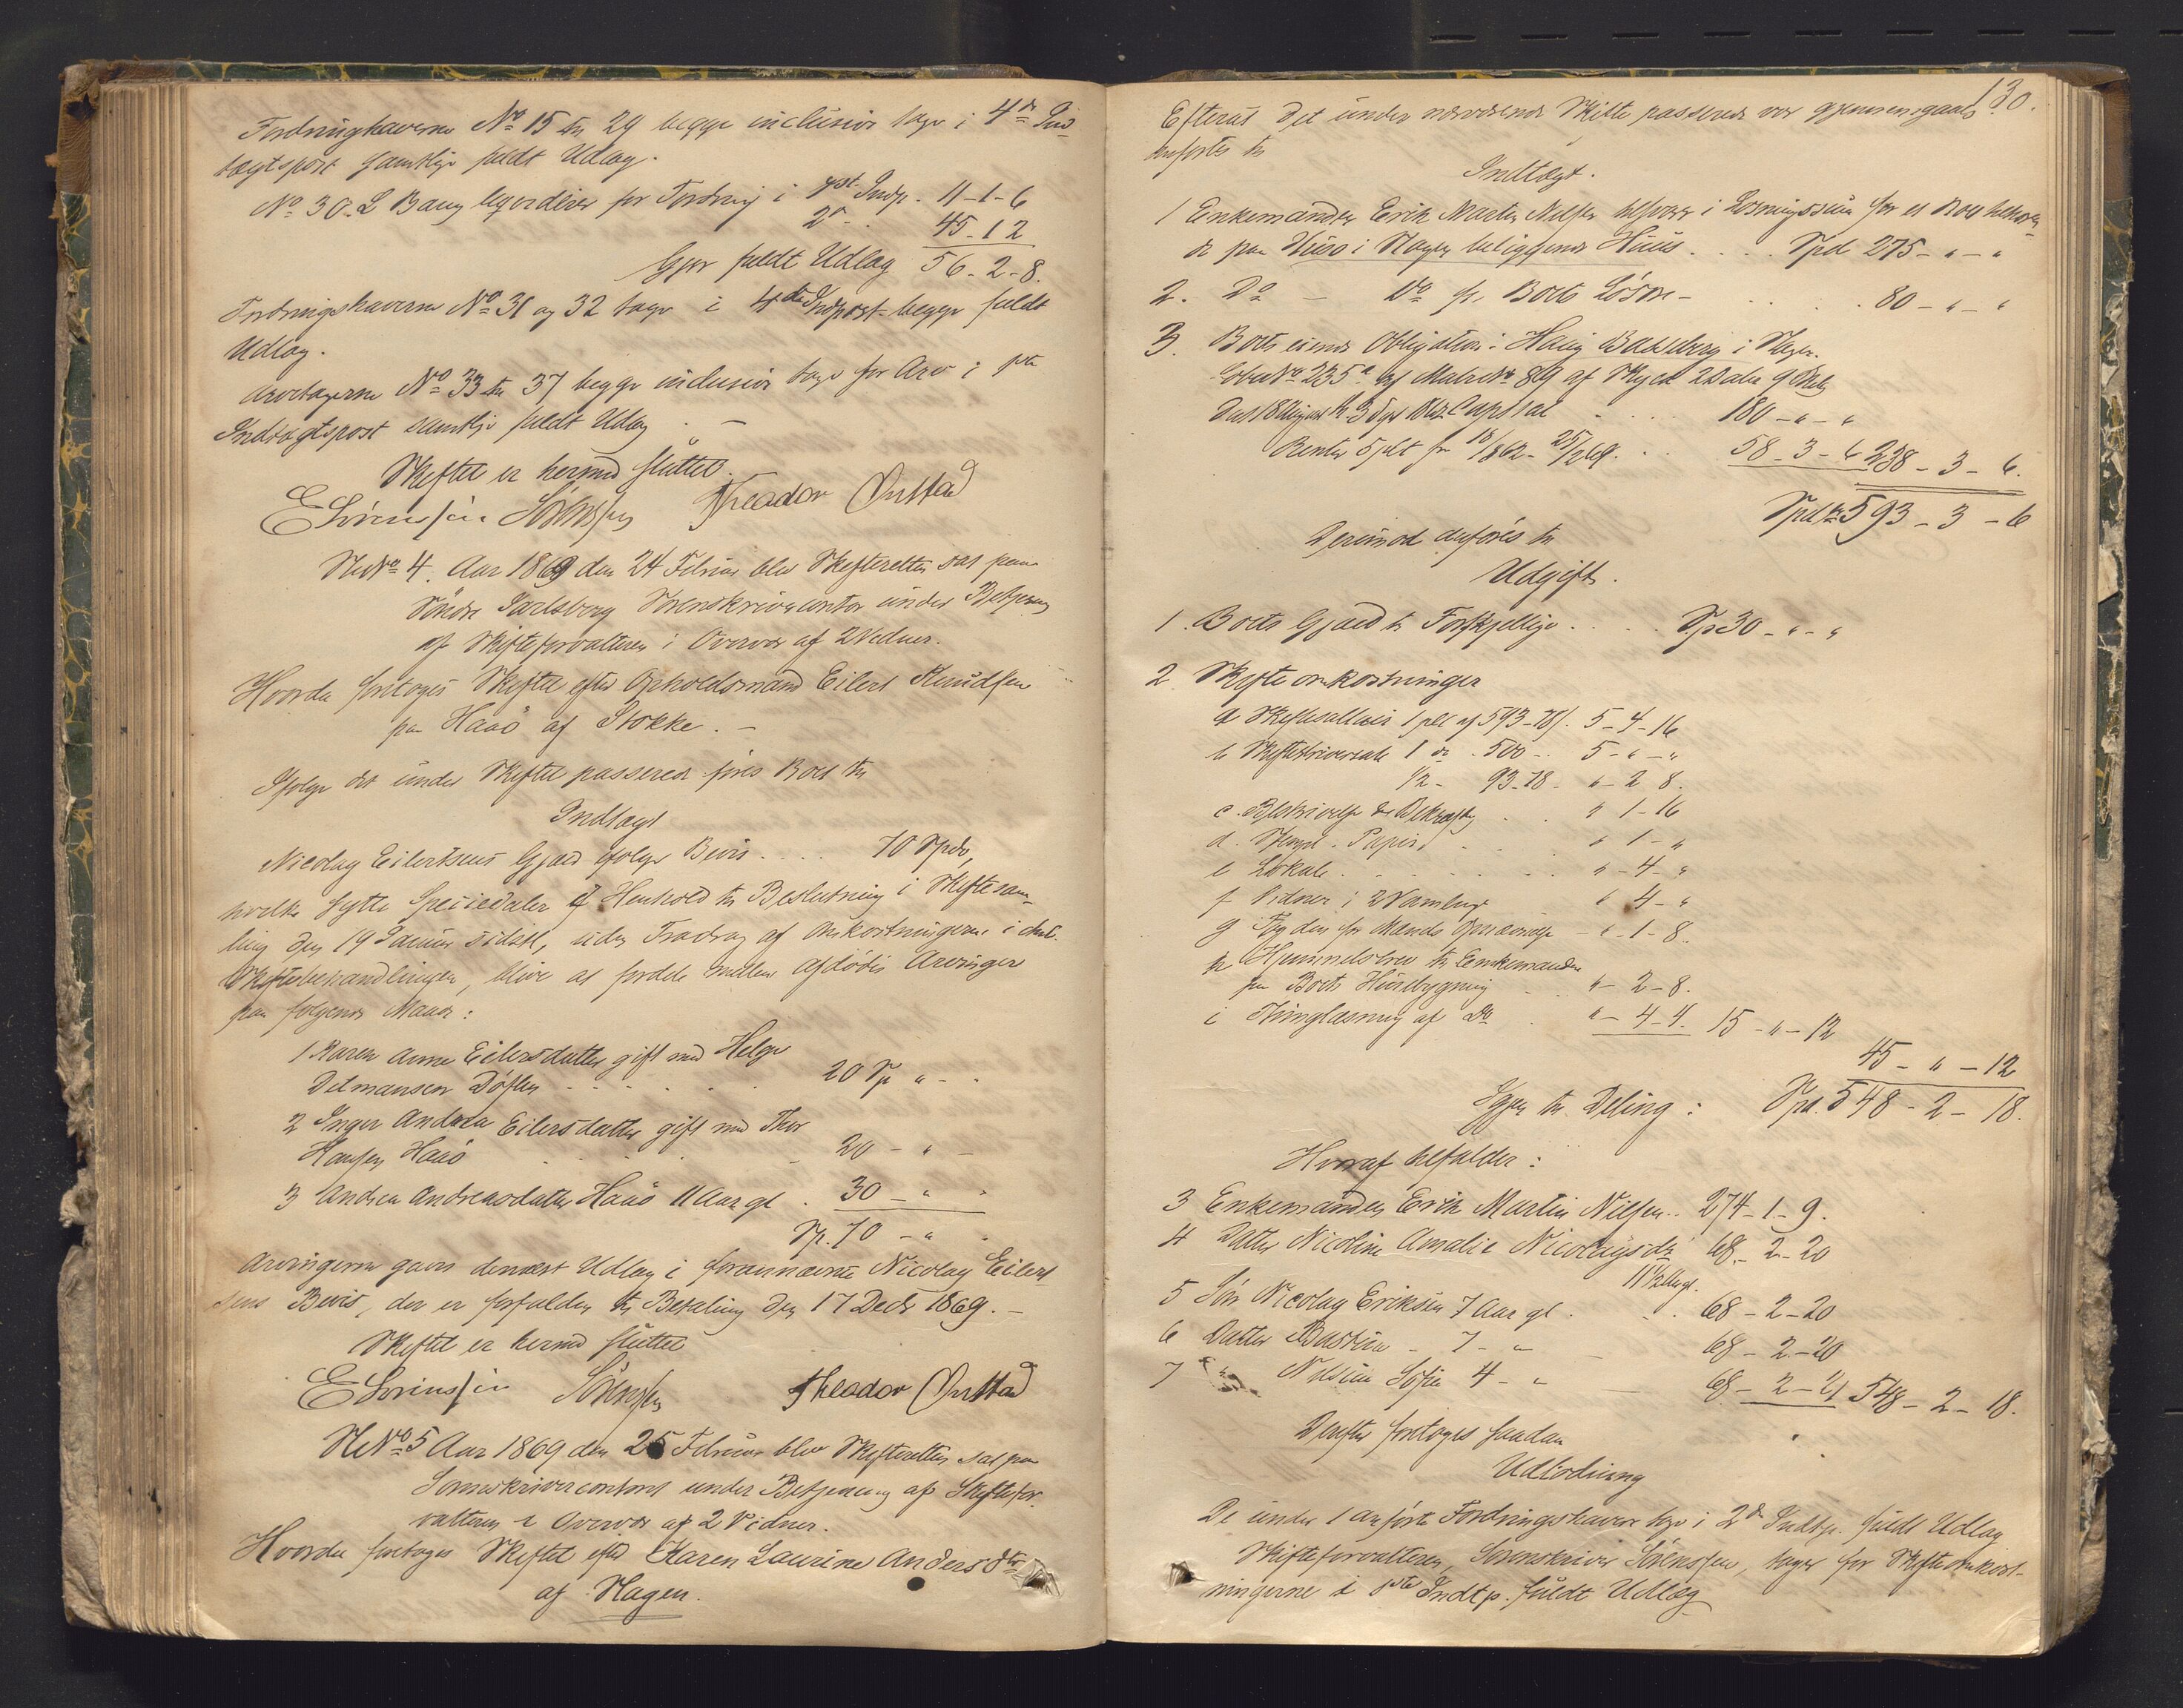 Fordringshaverne No 15 til 29 begge inclusive tage i 4de Ind-
tægtspost samtlige fuldt Udlag.
No 30. L Baug ligesledes for Fordring i 1st Indp. 11-1-6
2d - . 45-12
Gjør fuldt Udlag 56-2-8.
Fordringshaverne No 31 og 32 tage i 4de Indpost begge fuldt
Udlag.
Arvetagerne No 33 til 37 begge inclusive tage for Arv i 1ste
Indtægtspost samtlige fuldt Udlag. -
Skiftet er hermed sluttet.
E Sørenssen Theodor Onstad
No 4. Aar 1869 den 24 Februar blev Skifteretten sat paa
Søndre Jarlsberg Sorenskrivercontor under Betjening
af Skifteforvalteren i Overvær af 2 Vidner.
Hvorda foretoges Skiftet efter Opholdsmand Eilert Knudsen
paa Haaø af Stokke. -
Ifølge det under Skiftet passerede føres Boet til
Indtægt
Nicolay Eilertsens Gjæld ifølge Bevis . . . . 70 Spdr,
hvilke Sytti Speciedaler i Henhold til Beslutning i Skiftesam-
ling den 19 Januar sidstl, uden Fradrag af Omkostningerne i
Skiftebehandlingen, blive at fordele mellem afdødes Arvinger
paa følgende Maade:
1 Karen Anne Eilersdatter gift med Helge
Detmansen . . . . 20 Sp " - "
2 Inger Andrea Eilersdatter gift med Thor
Hansen Haaø . . . 20 - " -
3 Andrea Andreasdatter Haaø 11 Aar gl . 30 - " "
Sp. 70 - " "
Arvingerne gaves dernæst Udlæg i forannævnte Nicolay Eilert
sens Bevis, der er forfalden til Betaling den 17 Decbr 1869. -
Skiftet er hermed sluttet
E Sørenssen Theodor Onstad
No 5 Aar 1869 den 25 Februar blev Skifteretten sat paa
Sorenskrivercontoret under Betjening af Skiftefor-
valteren i Overvær af 2 Vidner.
Hvorda foretoges Skiftet efter Karen Laurine Andersdtr
af Hagen.
130.
Efterat det under nærværende Skifte passerede var gjennemgaaet
anførtes til
Indtægt.
1 Enkemanden Erik Martin Nilsen tilsvarer i Løsningssum for et Boet tilhøren-
de paa Husø i Hagen beliggende Huus . . . . Spd 275 - " - "
2. Do - Do for Boets Løsøre - . . . . 80 - " - "
3. Boets eiende Obligation i Haug i Hagen.
Løbe No 235a af Matr No 89 af Skyld 2 Daler 9 Skill
Dat 18 August 3 Capital . . . 180 - " - "
Renter 5 pCt fra 18/8 62 - 25/2 69. . . 58 - 3 - 6 238 - 3 - 6.
Spdlr 593 - 3 - 6
Derimod anføres til
Udgift.
1. Boets Gjæld til Forskjellige . . . . Sp 30 - " - "
2. Skifteomkostninger
a Skiftesallair 1 pCt af 593-78 5 - 4 - 16
b 1 do . 500 . . 5 - " - "
1/2 - 93-78 - " - 2 8.
c. Beskrivelse & Bekræft . . " 1 - 16
d. Stempl. Papir . . . " 1 - "
e Lokale . . . . . . " - 4 - "
f Vidner i 2 Samlinger " 4 - "
g Fogden for Mænds Opnævnelse - " - 1 - 8.
h Hjemmelsbrev til Enkemanden
paa Boets Huusbygning " - 2 - 8.
i Thinglæsning af Do . " - 4 - 4. 15 - " - 12
45 - " - 12
Igjen til Deling: Spd. 548 - 2 - 18.
Hvoraf tilfalder:
3 Enkemanden Erik Martin Nilsen . . 274 - 1 - 9.
4 Datter Nicoline Amalie Nicolaysdr 68 - 2 - 20
11 1/2 Aar gl.
5 Søn Nicolay Eriksen 7 Aar gl . . . 68 - 2 - 20
6 Datter Bastine - 7 - " - 68 - 2 - 20
7 " Nilsine Sofie 4 - " - 68 - 2 - 21 548 - 2 - 18.
Derefter foretoges saadan
Udlodning
De under 1 anførte Fordringshavere tage i 2de Indtp. fuldt Udlag
Skifteforvalteren, Sorenskriver Sørenssen, tager for Skifteomkost-
ningerne i 1ste Indtp. fuldt Udlag